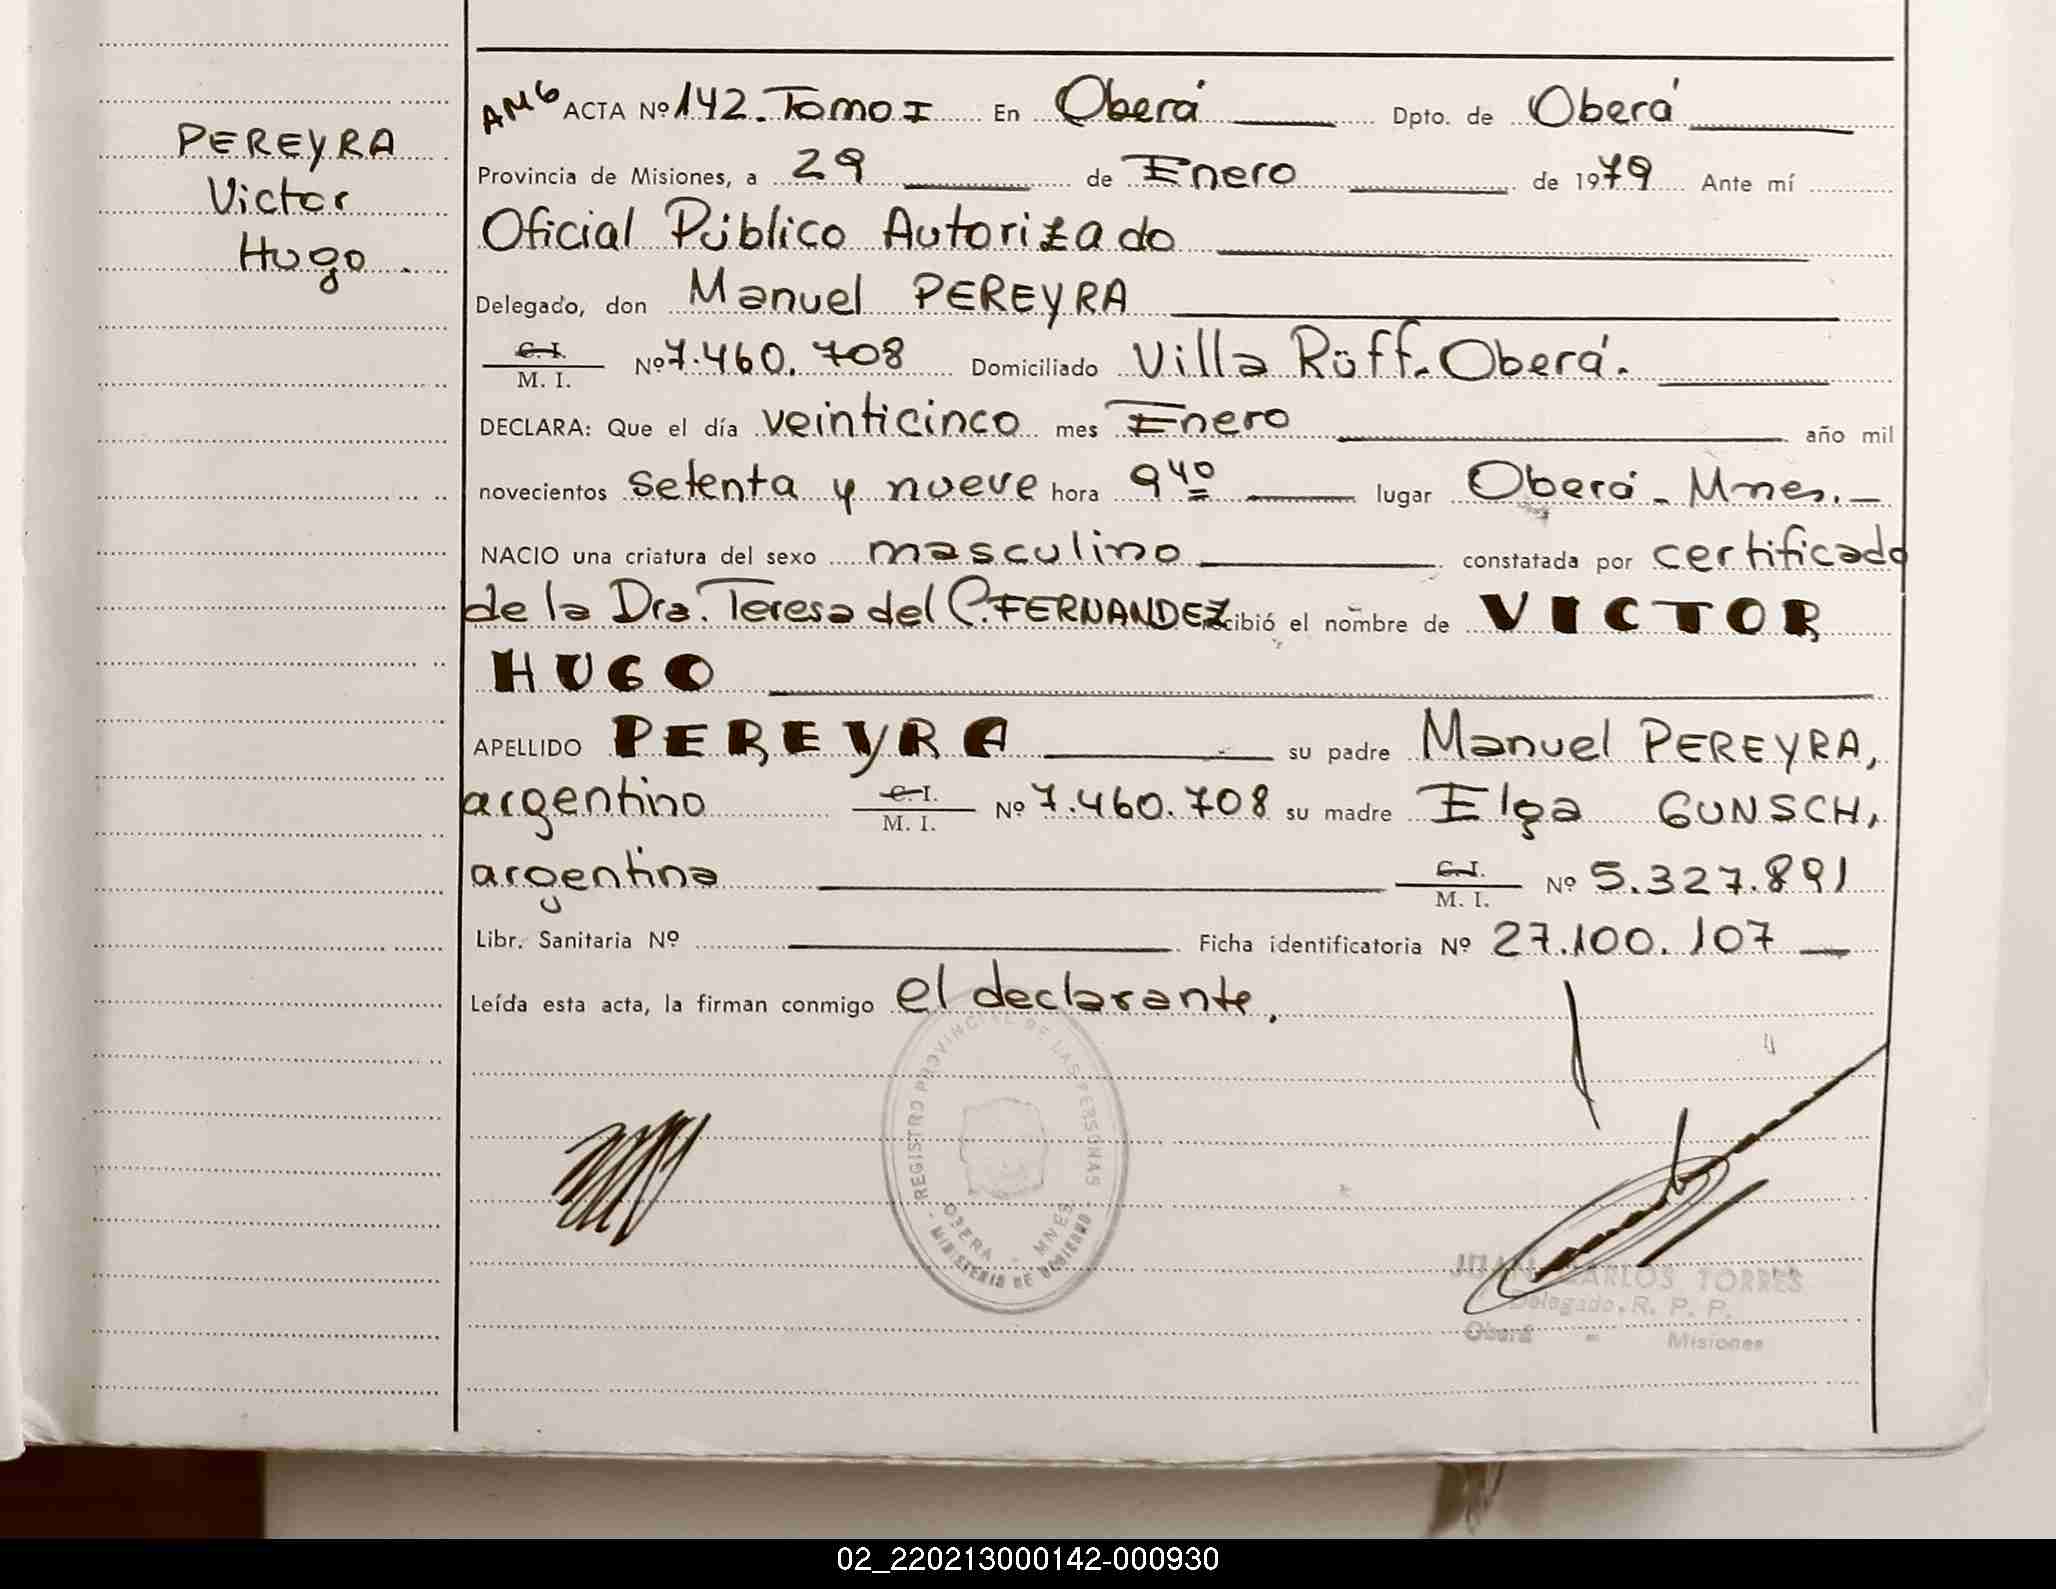 PEREYRA
Victor
Hugo.
AMG ACTA Nº 142. Tomo I En Oberá Dpto. de Oberá
Provincia de Misiones, a 29 de Enero de 1979 Ante mí
Oficial Público Autorizado
Delegado, don Manuel PEREYRA
C. I.
M. I. Nº 7.460.708 Domiciliado Villa Rüff. Oberá.
DECLARA: Que el día veinticinco mes Enero año mil
novecientos setenta y nueve hora 9 40 lugar Oberá - Mnes. -
NACIO una criatura del sexo masculino constatada por certificado
de la Dra. Teresa del C. FERNANDEZ recibió el nombre de VICTOR
HUGO
APELLIDO PEREYRA su padre Manuel PEREYRA,
argentino C. I.
M. I. Nº 7.460.708 su madre Elga GUNSCH,
argentina C. I.
M. I. Nº 5.327.891
Libr. Sanitaria Nº Ficha identificatoria Nº 27.100.107
Leída esta acta, la firman conmigo el declarante,
REGISTRO PROVINCIAL DE LAS PERSONAS
OBERA - MNES.
MINISTERIO DE GOBIERNO
JUAN CARLOS TORRES
Delegado. R. P. P.
Oberá - Misiones
02_220213000142-000930